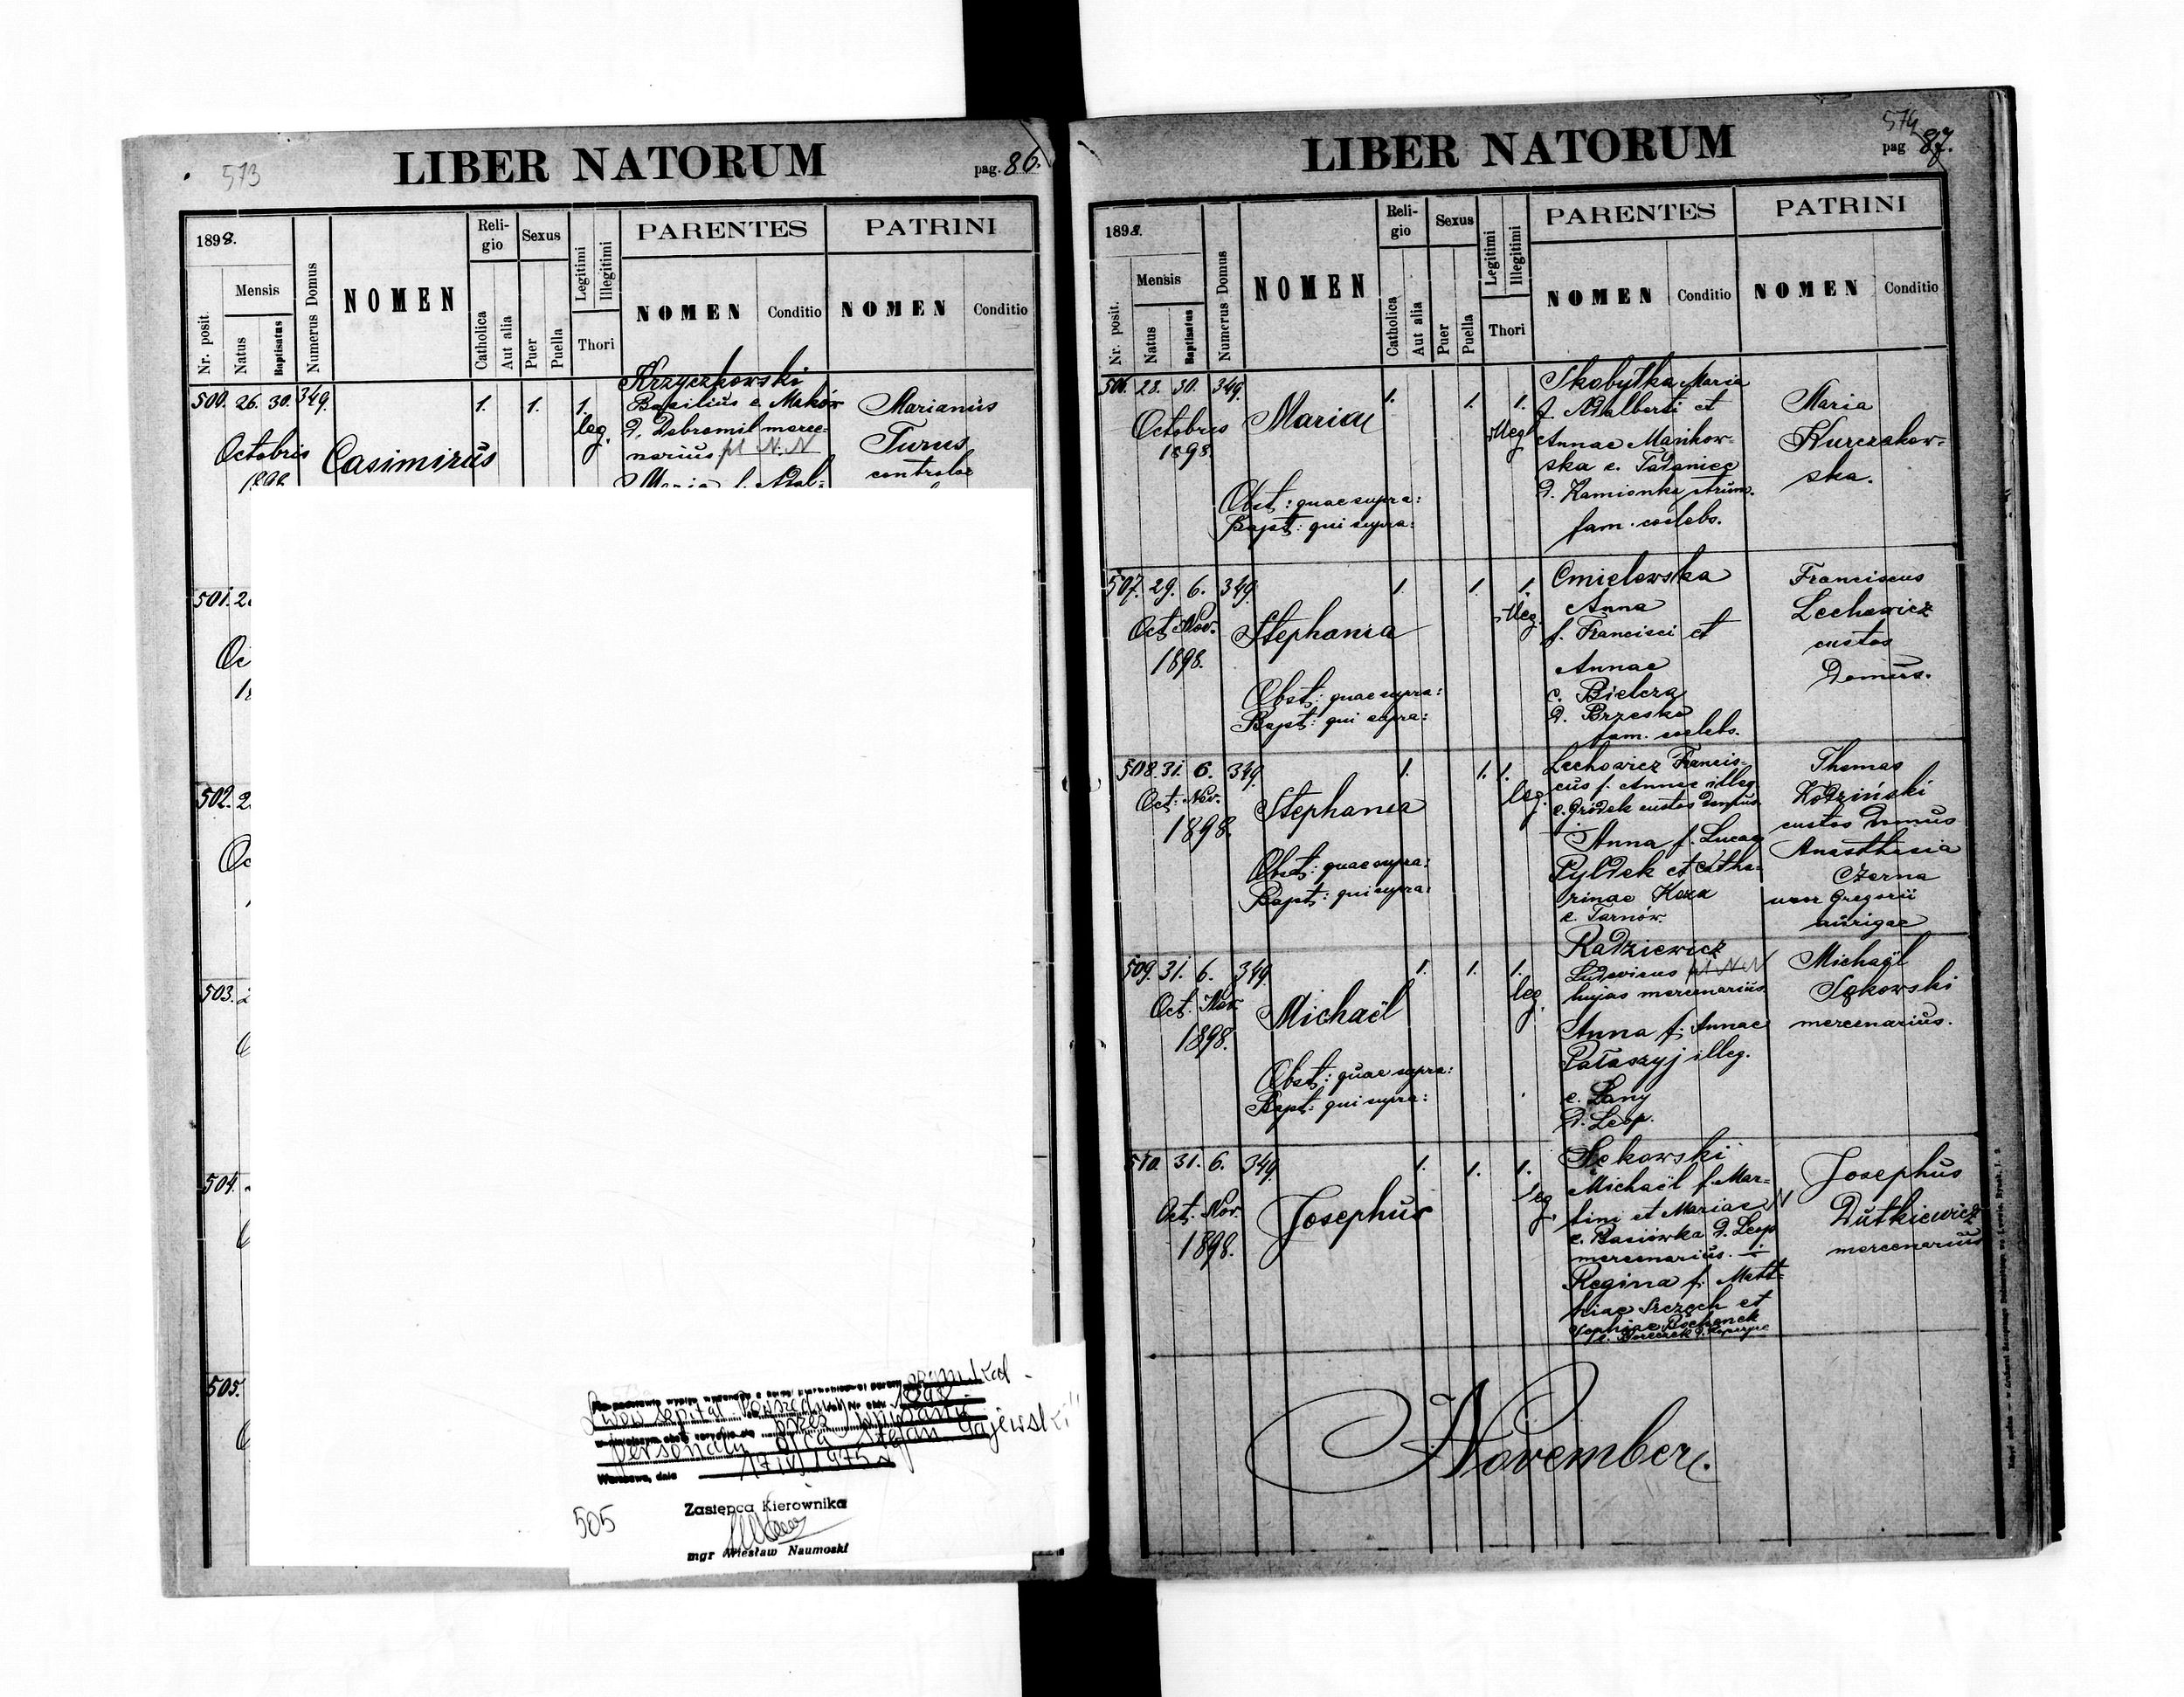 573
LIBER NATORUM
pag. 86.
1898.
Nr. posit.
Mensis
Natus
Baptisatus
Numerus Domus
NOMEN
Reli-
gio
Catholica
Aut alia
Sexus
Puer
Puella
Legitimi
Illegitimi
Thori
PARENTES
NOMEN
Conditio
PATRINI
NOMEN
Conditio
500. 26. 30. 349.
Octobris
1898
Casimirus
1. 1. 1.
leg.
Krzyczkowski
Basilius e. Maków
d. Dobromil merce-
narius pl N. N
Maria f. Adal-
Marianus
Turus
controlae
501. 2
Oc
502. 2
Oc
503. 2
504.
505.
Lwów szpital Powszechny
przez wpisanie
personaliów ojca "Stefan Gajewski"
Warszawa, dnia
505
Zastępca Kierownika
mgr Wiesław Naumoski
574
LIBER NATORUM
pag 87.
1898.
Nr. posit.
Mensis
Natus
Baptisatus
Numerus Domus
NOMEN
Reli-
gio
Catholica
Aut alia
Sexus
Puer
Puella
Legitimi
Illegitimi
Thori
PARENTES
NOMEN
Conditio
PATRINI
NOMEN
Conditio
506. 28. 30. 349.
Octobris
1898.
Maria
Obst: quae supra:
Bapt: qui supra:
1. 1. 1.
illeg
Skobyłka Maria
f. Adalberti et
Annae Mańkow-
ska e. Tadaniec
d. Kamionka strum.
fam. coelebs.
Maria
Kurczakow-
ska.
507. 29. 6. 349.
Oct. Nov.
1898.
Stephania
Obst: quae supra:
Bapt: qui supra:
1. 1. 1.
illeg.
Cmielewska
Anna
f. Francisci et
Annae
e. Bielcza
d. Brzesko
fam. coelebs.
Franciscus
Lechowicz
custos
domus.
508. 31. 6. 349.
Oct. Nov.
1898.
Stephania
Obst: quae supra:
Bapt: qui supra:
1. 1. 1.
leg.
Lechowicz Francis-
cus f. Annae illeg
e. Gródek custos domus.
Anna f. Lucae
Pyldek et Catha-
rinae Koza
e. Tarnów.
Thomas
Kodziński
custos domus
Anasthasia
Czerna
uxor Gregorii
aurigae
509. 31. 6. 349.
Oct. Nov.
1898.
Michaël
Obst: quae supra:
Bapt: qui supra:
1. 1. 1.
leg.
Radziewicz
Ludovicus pl N. N
hujas mercenarius
Anna f. Annae
Pałaszyj illeg.
e. Lany
d. Leop.
Michaël
Sękowski
mercenarius.
510. 31. 6. 349.
Oct. Nov.
1898.
Josephus
1. 1. 1.
leg.
Sękowski
Michaël f. Mar-
tini et Mariae N
e. Basiówka d. Leop
mercenarius.
Regina f. Matt-
hiae Szczech et
Sophiae Bochenek
Josephus
Dutkiewicz
mercenarius
November.